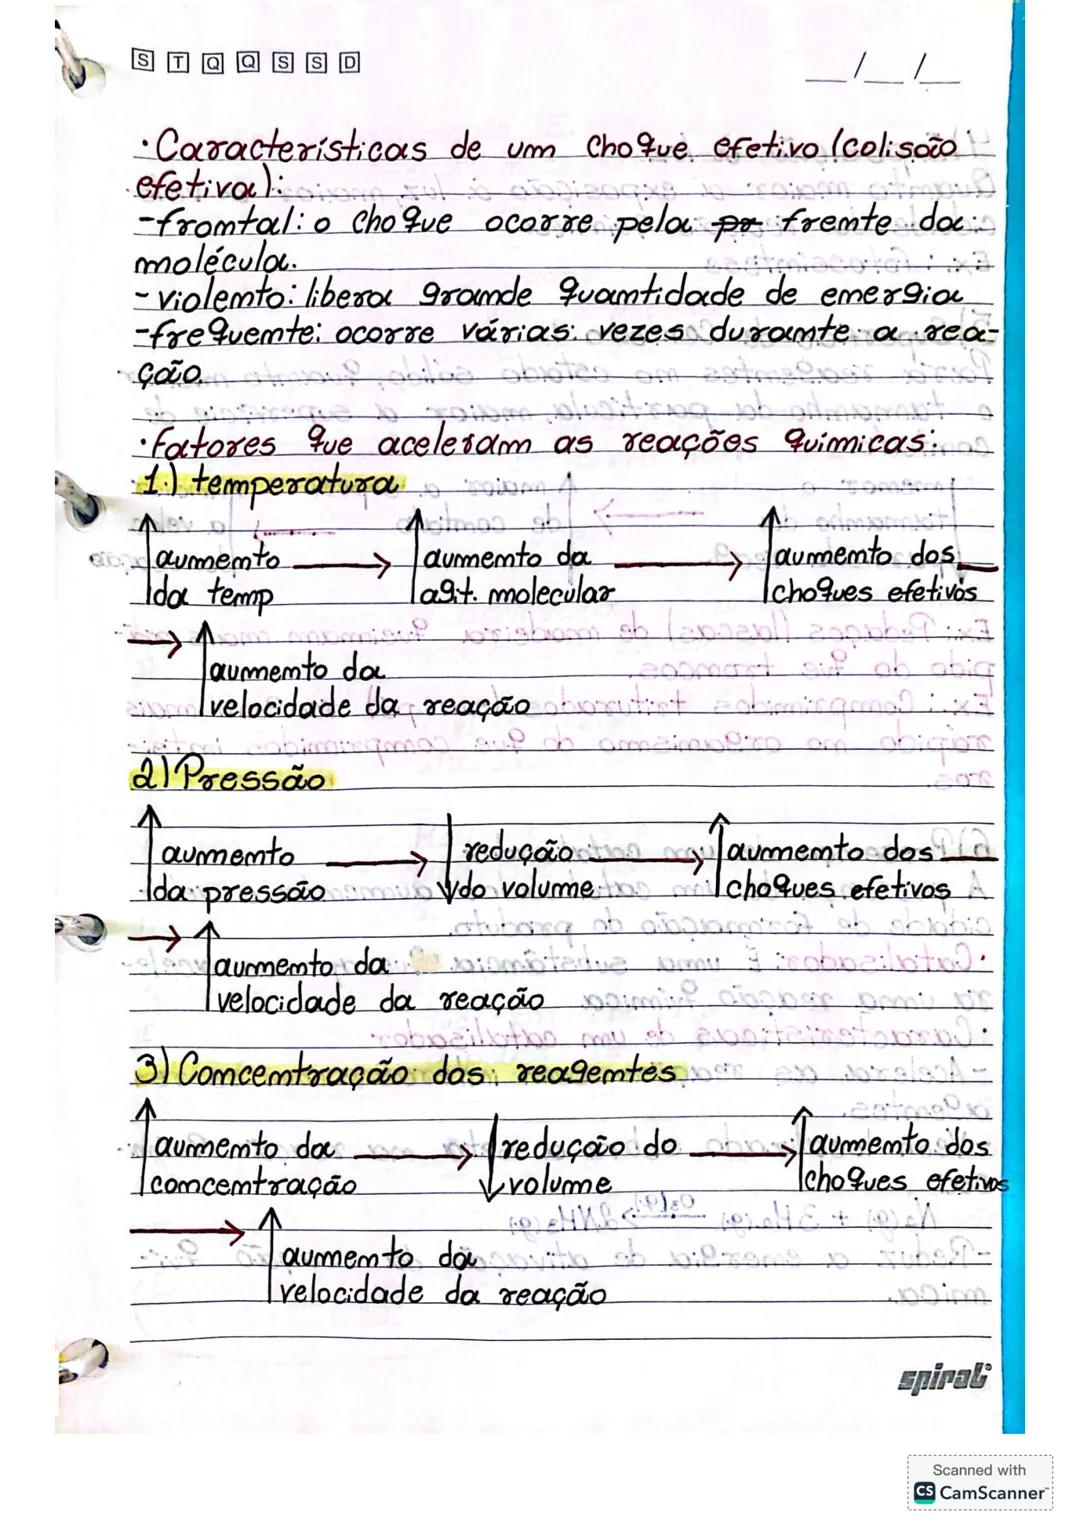 S T Q Q S S D
__/__/__
·Características de um choque efetivo (colisão
efetiva):
-frontal: o choque ocorre pela pr frente da
molécula.
-violento: libera grande quantidade de energia
-frequente: ocorre várias vezes durante a rea-
ção.
·Fatores que aceleram as reações químicas:
1.) temperatura
↑ aumento → ↑ aumento da → ↑ aumento dos
da temp agit. molecular choques efetivos
→ ↑ aumento da
velocidade da reação
2) Pressão
↑ aumento → ↓ redução → ↑ aumento dos
da pressão do volume choques efetivos
→ ↑ aumento da
velocidade da reação
3) Concentração dos reagentes
↑ aumento da → ↓ redução do → ↑ aumento dos
concentração volume choques efetivos
→ ↑ aumento da
velocidade da reação
spiral
Scanned with
CS CamScanner